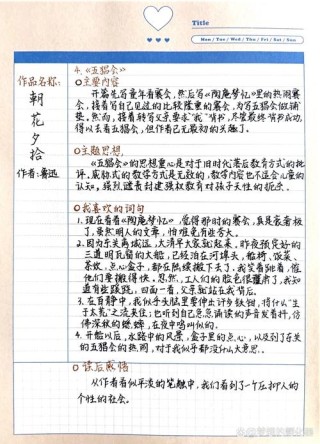 Title
Mon / Tue / Wed / Thu / Fri / Sat / Sun
作品名称:
朝
花
夕
拾
作者:鲁迅
4.《五猖会》
○主要内容
开篇先写童年看赛会,然后写《陶庵梦忆》里的热闹赛
会,接着写自己见过的比较隆重的赛会,为写五猖会做铺
垫。然而,接着转写父亲要求"我"背书,尽管最终背书成功,
得以去看五猖会,但作者已无最初的兴趣了。
○主题思想:
《五猖会》的思想重心是对于旧时代落后教育方式的批
评。威胁式的教学方式是无效的,教学内容也不适合儿童的
认知。强烈谴责封建强权教育对孩子天性的扼杀。
○我喜欢的词句
1.现在看看《陶庵梦忆》,觉得那时的赛会,真是豪奢极
了,虽然明人的文章,怕难免有些夸大。
2.因为东关离城远,大清早大家就起来。昨夜预定好的
三道明瓦窗的大船,已经泊在河埠头,船椅、饭菜、
茶炊、点心盒子,都在陆续搬下去了。我笑着跳着,催
他们要搬得快。忽然,工人的脸色很谨肃了,我知
道有些蹊跷,四面一看,父亲就站在我背后。
3.在百静中,我似乎头里要伸出许多铁钳,将什么"生
于太荒"之流夹住;也听到自己急急诵读的声音发着抖,仿
佛深秋的蟋蟀,在夜中鸣叫似的。
4.开船以后,水路中的风景,盒子里的点心,以及到了东关
的五猖会的热闹,对于我似乎都没什么大意思。
○读后感悟
从作者看似平淡的笔触中,我们看到了一个压抑人的
个性的社会。